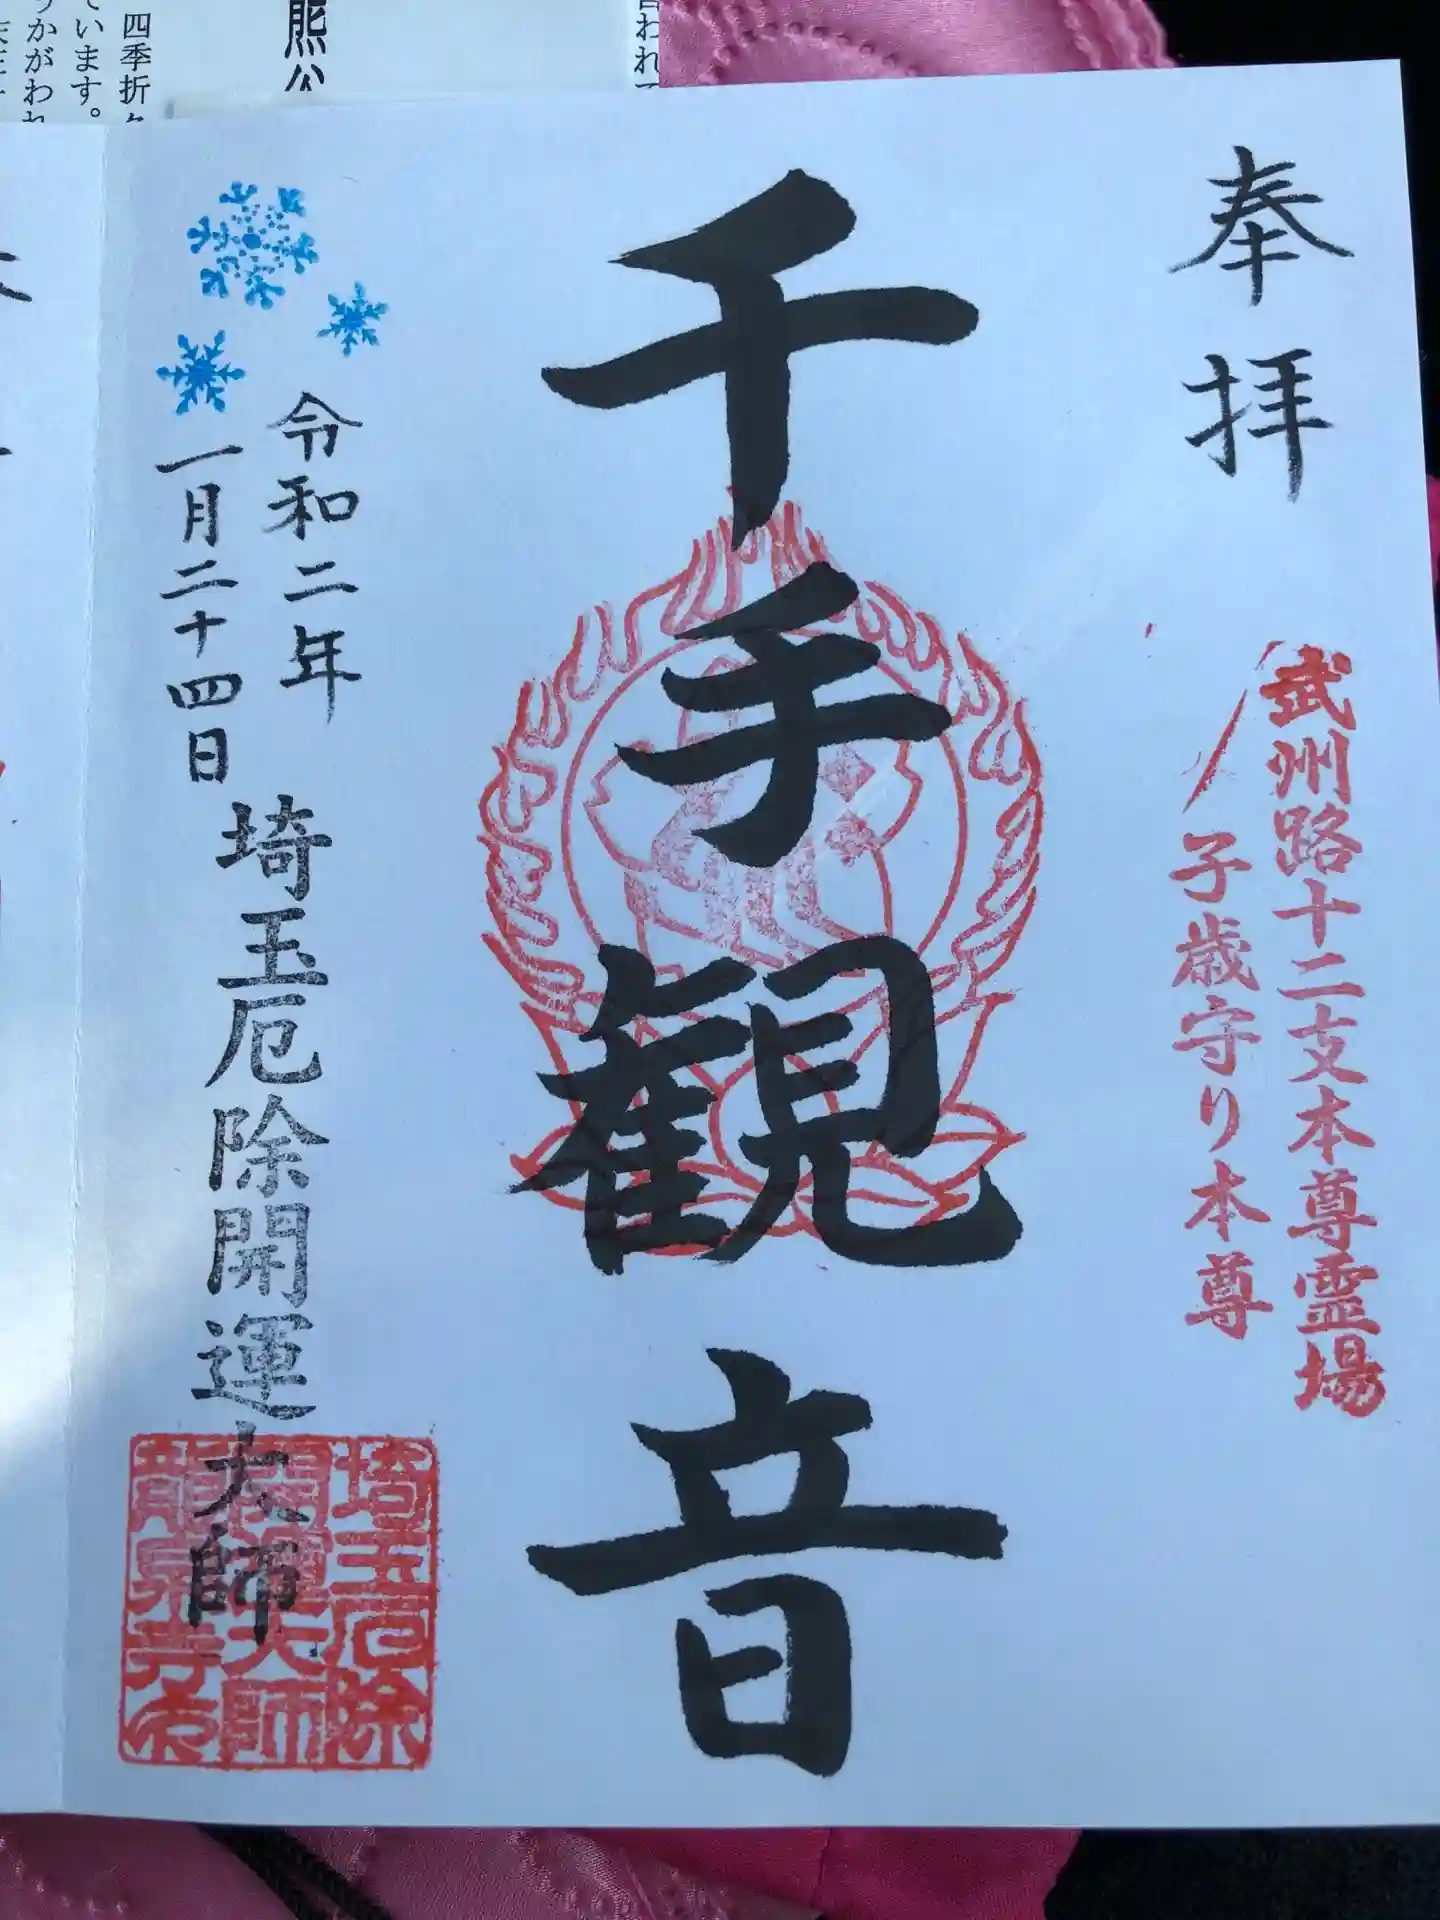 奉拝
武州路十二支本尊霊場
子歳守り本尊
千手観音
令和二年
一月二十四日
埼玉厄除開運大師
埼玉厄除
開運大師
龍泉寺印
言われて
熊公
四季折々
ています。
うかがわれ